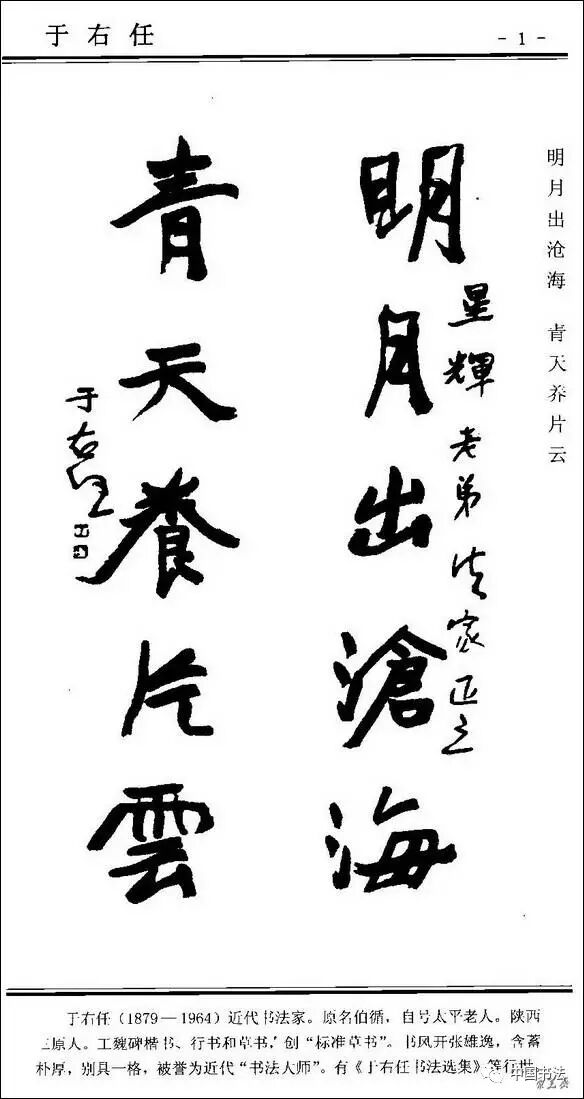 于右任
- 1 -
明月出沧海 青天养片云
明月出滄海
星輝老弟法家正之
青天養片雲
于右任
于右任（1879—1964）近代书法家。原名伯循，自号太平老人。陕西
三原人。工魏碑楷书、行书和草书，创“标准草书”。书风开张雄逸，含蓄
朴厚，别具一格，被誉为近代“书法大师”。有《于右任书法选集》等行世
中国书法